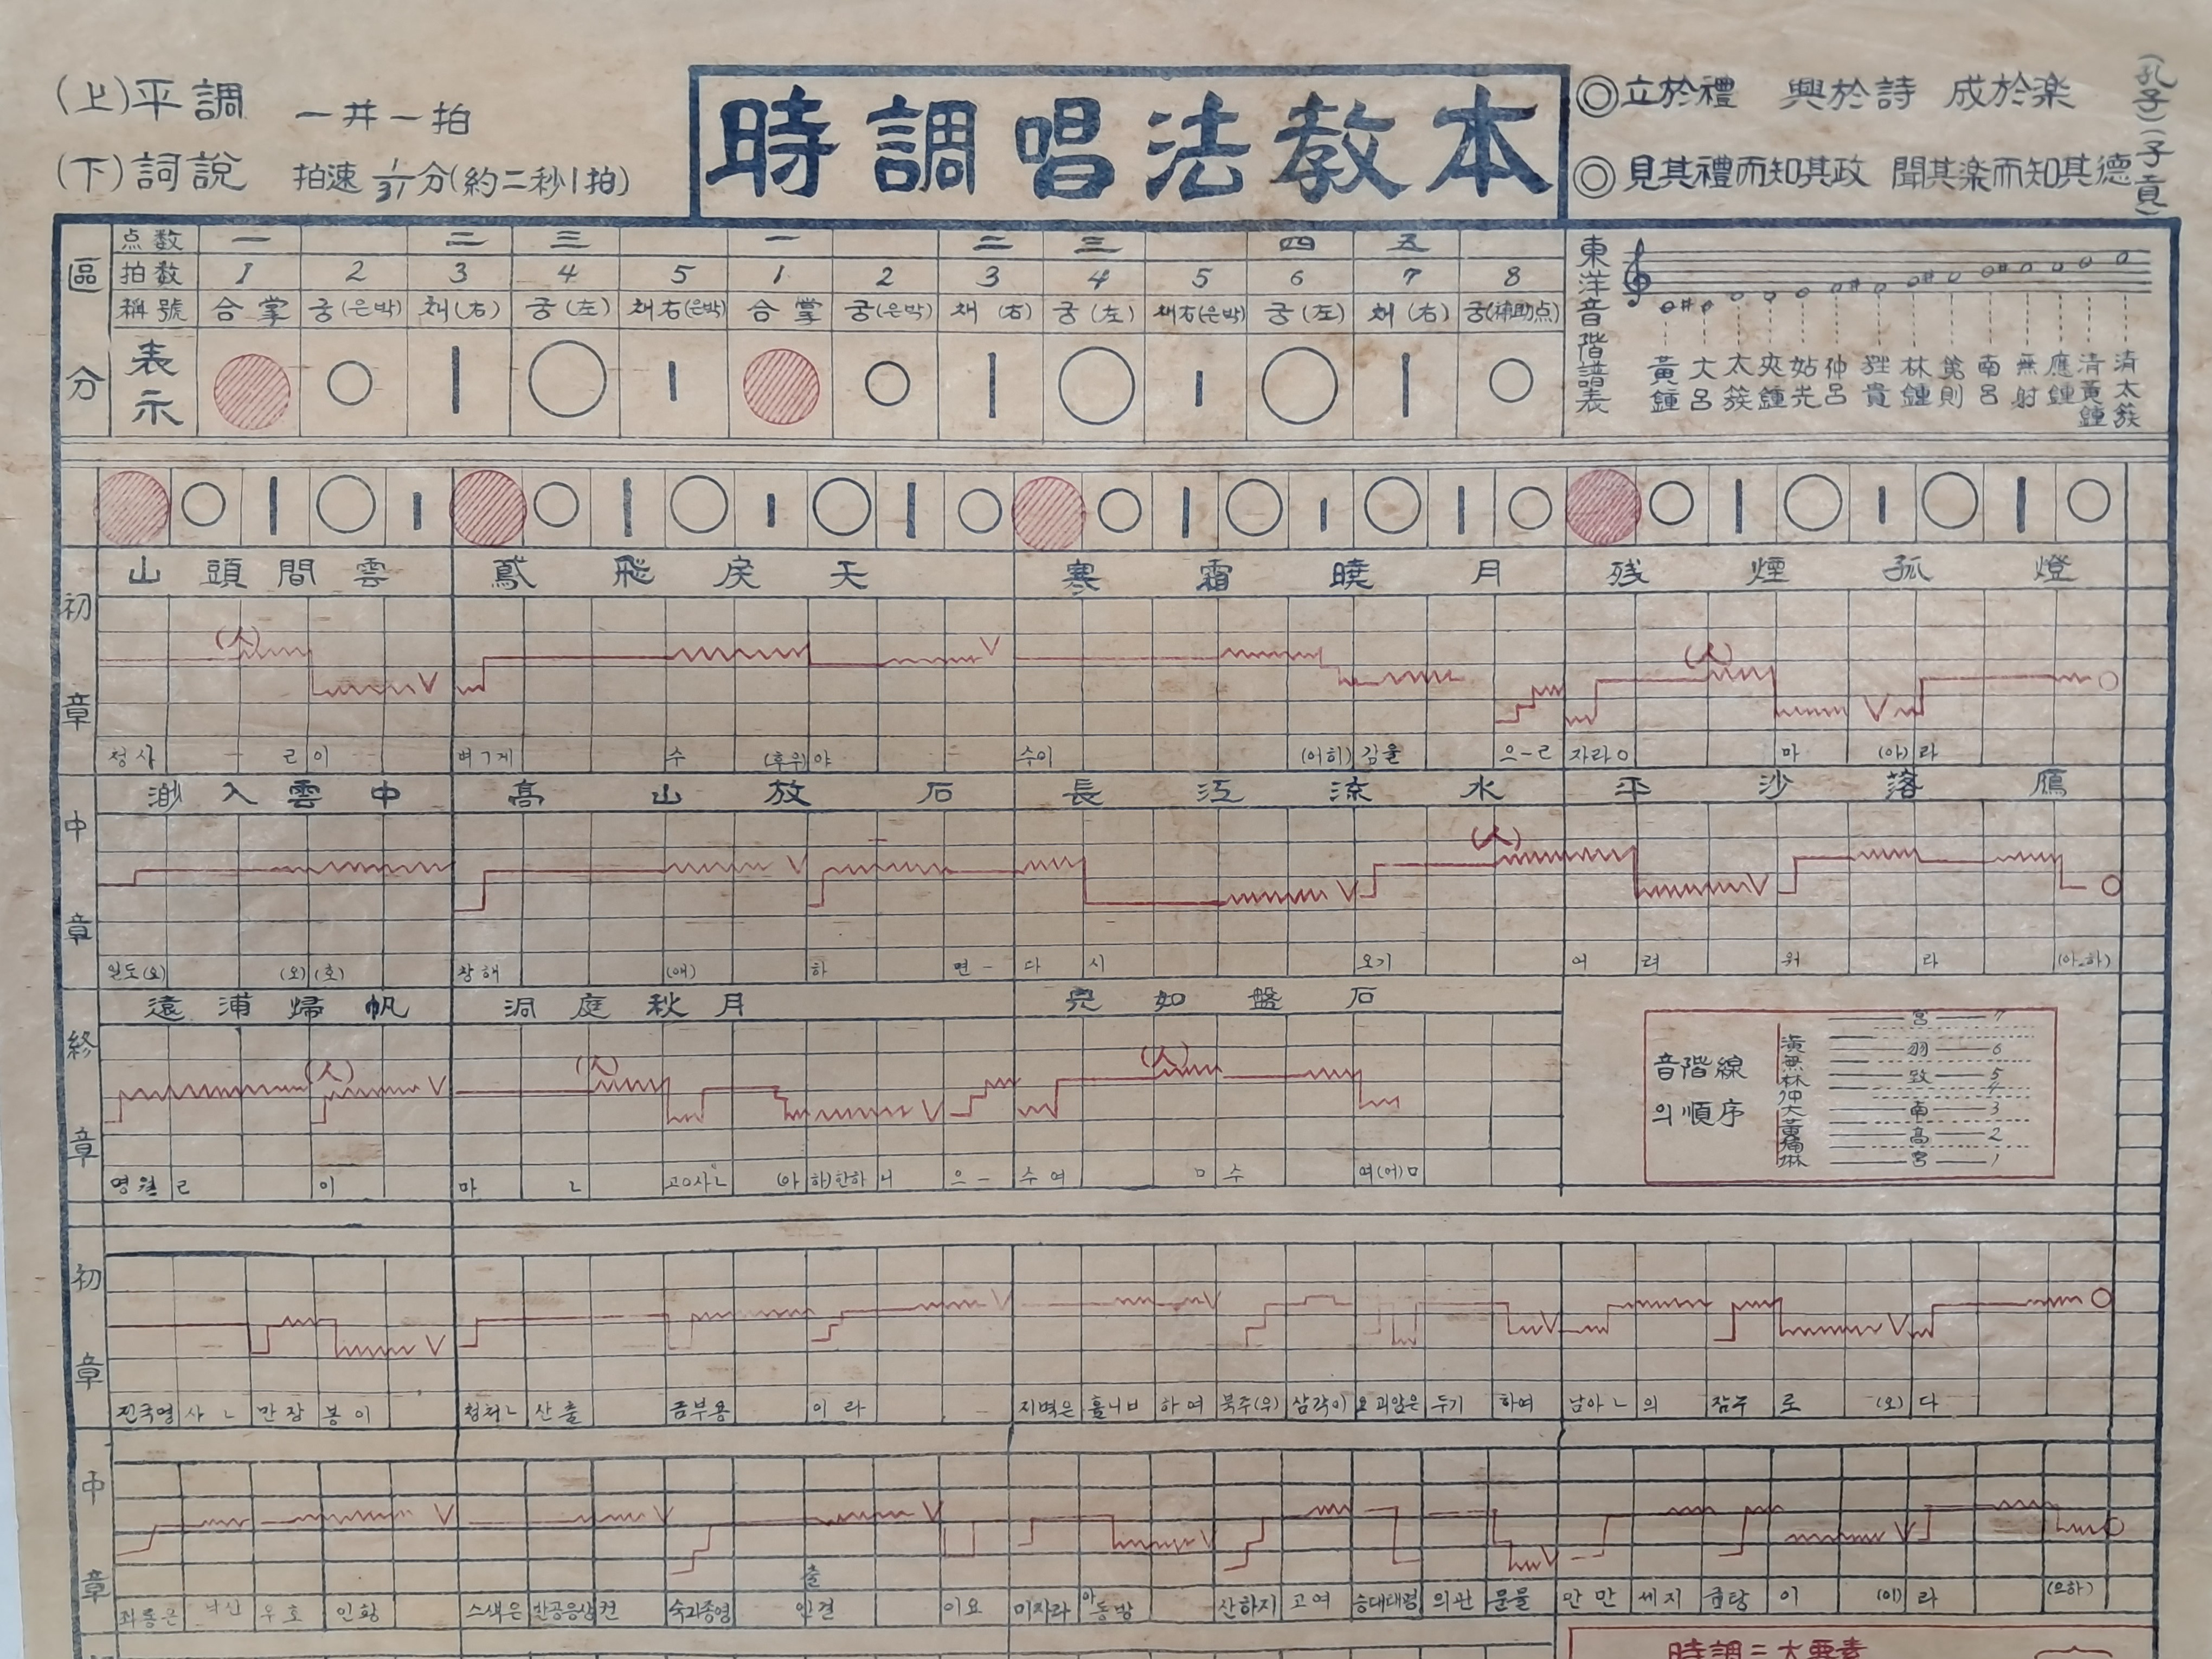 (上)平調 一井一拍
(下)詞說 拍速 1/31分(約二秒1拍)
時調唱法教本
◎立於禮 興於詩 成於楽 (孔子)
◎見其禮而知其政 聞其楽而知其德 (子貢)
區分
点数 一 二 三 一 二 三 四 五
拍数 1 2 3 4 5 1 2 3 4 5 6 7 8
稱號 合掌 궁(은박) 채(右) 궁(左) 채右(은박) 合掌 궁(은박) 채(右) 궁(左) 채右(은박) 궁(左) 채(右) 궁(補助点)
表示
東洋音階譜表
黃鍾 大呂 太簇 夾鍾 姑先 仲呂 林鍾 則 南呂 無射 應鍾 清黃鍾 清太簇
初章
山頭間雲 鳶飛戾天 寒霜曉月 残煙孤燈
(人) (人)
청사 ㄹ이 벼ㄱ게 수 (후위)야 수이 (어히)감을 으-ㄹ 자라ㅇ 마 (아)라
中章
渺入雲中 高山放石 長江流水 平沙落鴈
(人)
일도(오) (오)(호) 창해 (애) 하 면- 다 시 오기 어 려 워 라 (아_하)
終章
遠浦歸帆 洞庭秋月 完如盤石
(人) (人) (人)
명월ㄹ 이 마 ㄴ 고ㅇ사ㄴ (아하)한하니 으- 수여 ㅁ수 여(어)ㅁ
音階線의順序
潢 無 林 仲 太 黃
宮 7
羽 6
致 5
4
南 3
高 2
宮 1
初章
진국명 사ㄴ 만장 봉이 청처ㄴ 산출 금부용 이라 지벽은 흘니ㅂ 하여 북주(우) 삼각이오 괴암은 두기 하여 남아ㄴ 의 잠두 로 (오)다
中章
좌룡은 낙산 우호 인왕 스색은 반공응상컨 숙괴종영 출인걸 이요 미자라 아동방 산하지 고여 승대태령 의관 문물 안만 세지 금탕 이 (이)라 (으하)
時調三大要素